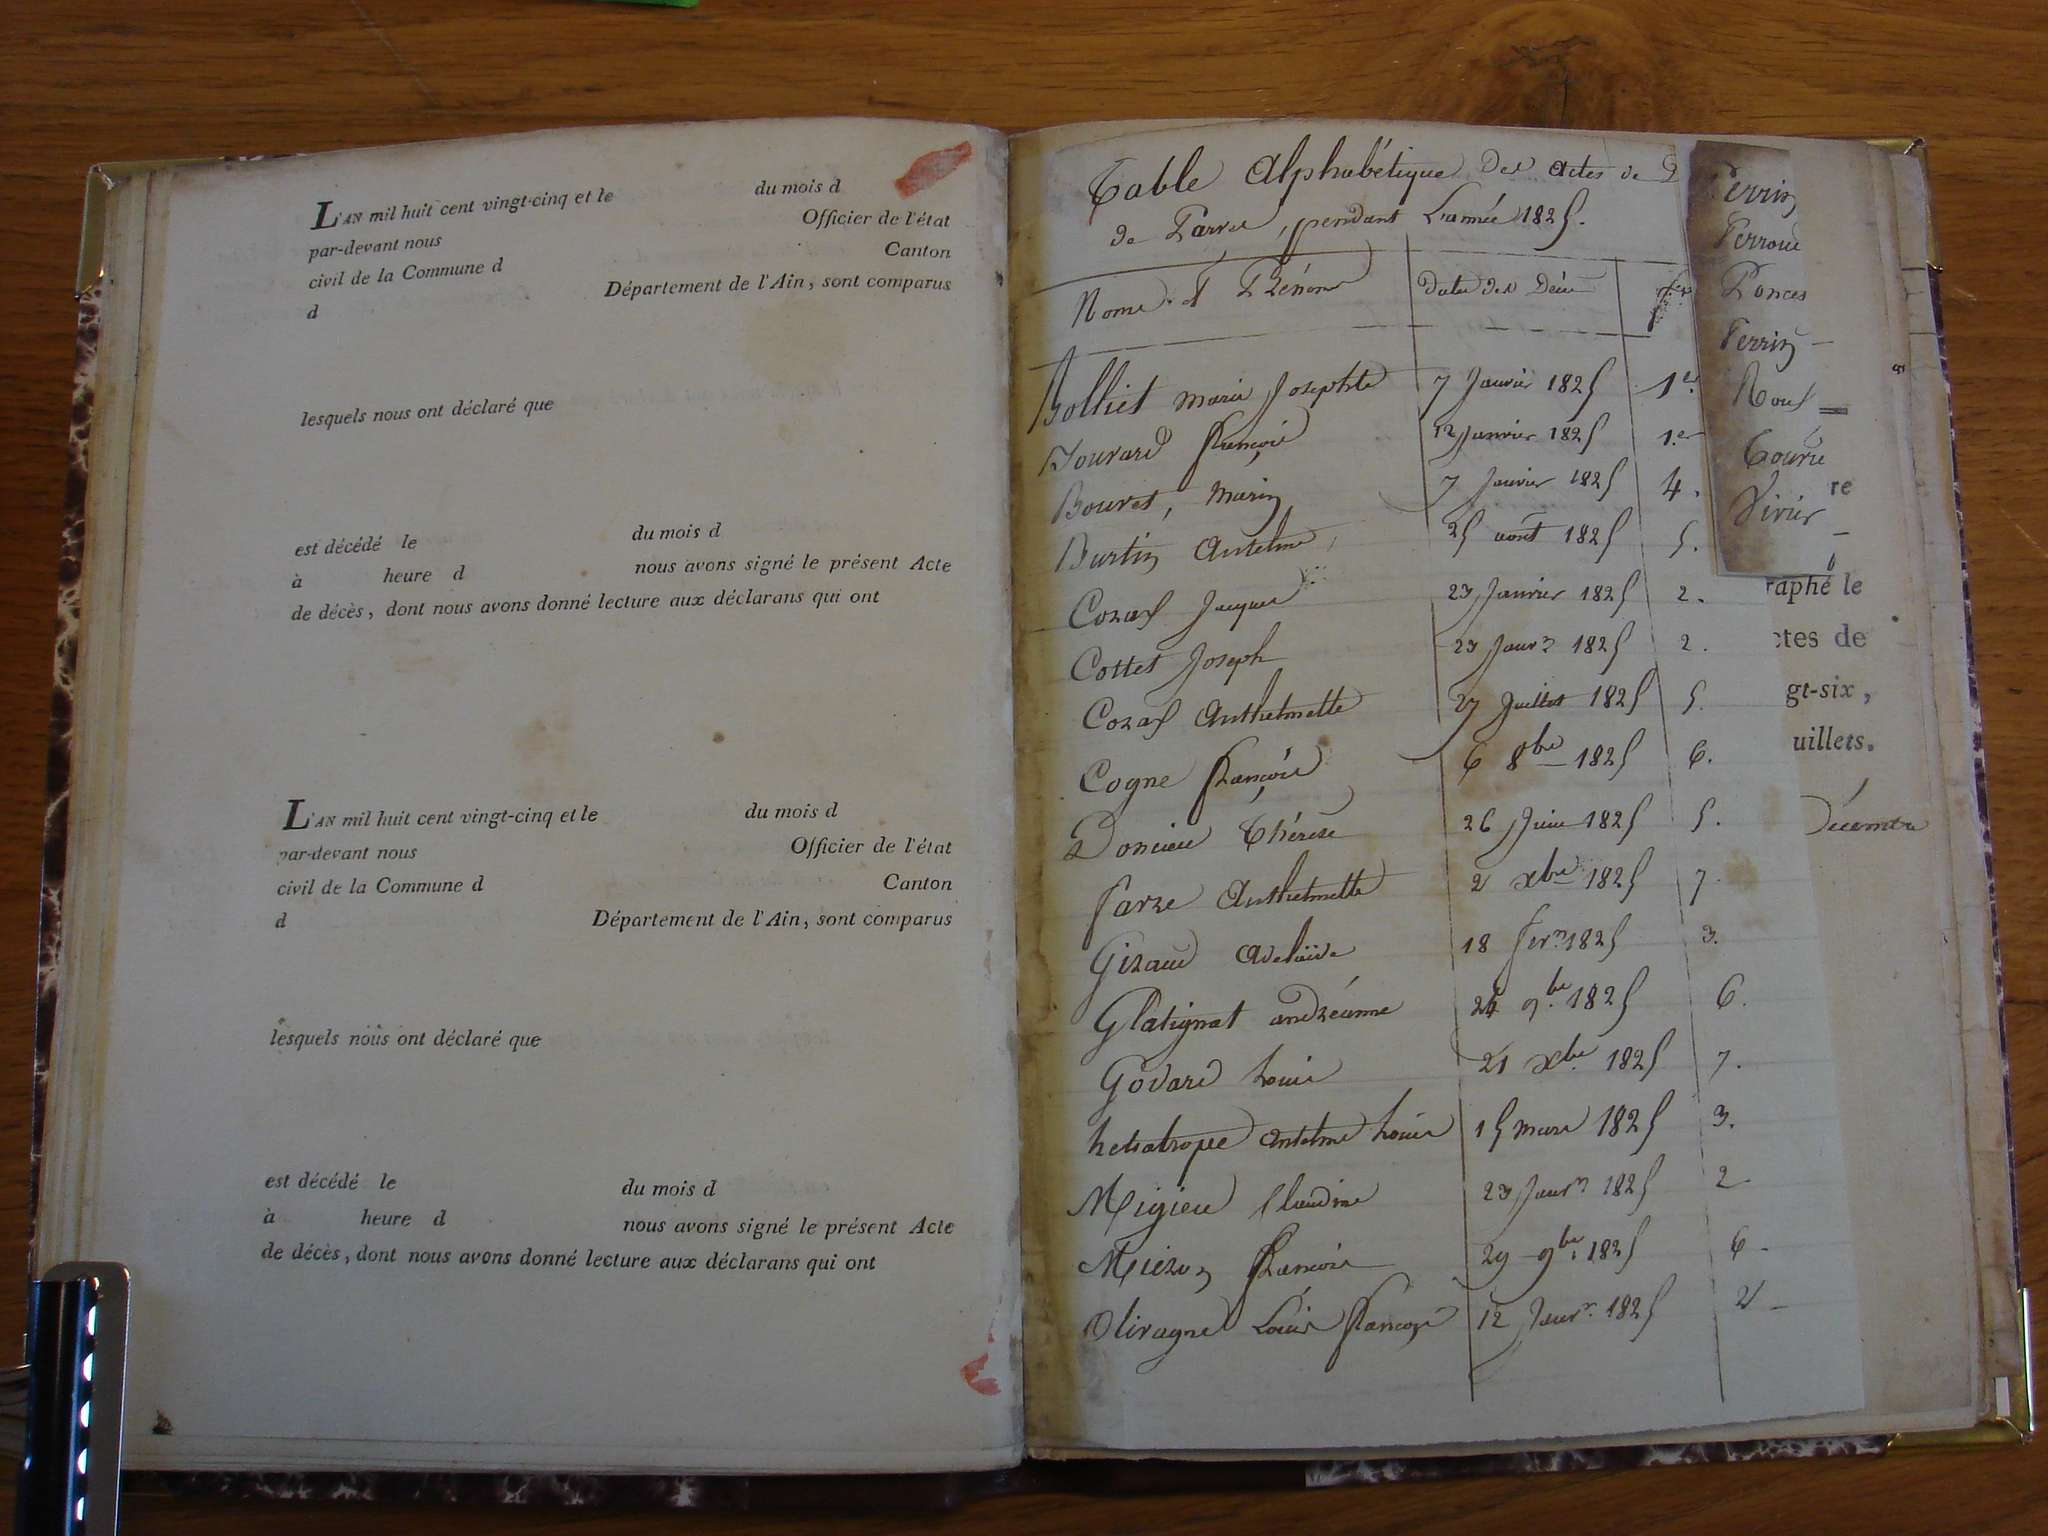 L'AN mil huit cent vingt-cinq et le du mois d
par-devant nous Officier de l'état
civil de la Commune d Canton
d Département de l'Ain, sont comparus
lesquels nous ont déclaré que
est décédé le du mois d
à heure d nous avons signé le présent Acte
de décès, dont nous avons donné lecture aux déclarans qui ont
L'AN mil huit cent vingt-cinq et le du mois d
par-devant nous Officier de l'état
civil de la Commune d Canton
d Département de l'Ain, sont comparus
lesquels nous ont déclaré que
est décédé le du mois d
à heure d nous avons signé le présent Acte
de décès, dont nous avons donné lecture aux déclarans qui ont
Table Alphabétique des actes de
de Parves, pendant L'année 1825.
Noms et Prénoms Date des Décès
Bolliet marie Josephte 7 Janvier 1825 1er
Bouvard françois 12 Janvier 1825 1.er
Bouvet, Marin 7 Janvier 1825 4.
Burtin Antelme 25 août 1825 5.
Cozas Jacques 23 Janvier 1825 2.
Cottet Joseph 23 Janv.r 1825 2.
Cozas Anthelmette 27 Juillet 1825 5.
Cogne françoise 6 8bre 1825 6.
Doncieu Thérèse 26 Juin 1825 5.
farze Anthelmette 2 xbre 1825 7.
Giraud Adelaïde 18 fev.r 1825 3.
Glatignat andréanne 24 9.bre 1825 6.
Godard Louis 21 xbre 1825 7.
antelme Louis 15 mars 1825 3.
Migieu Claudine 23 Janv.r 1825 2
françoise 29 9bre 1825 6.
Olivagne Louis françois 12 Janv.r 1825 2
Perrin
Perroud
Ponces
Perrin
Roux
Vivier
re
raphé le
ctes de
gt-six,
uillets.
Décembre
8